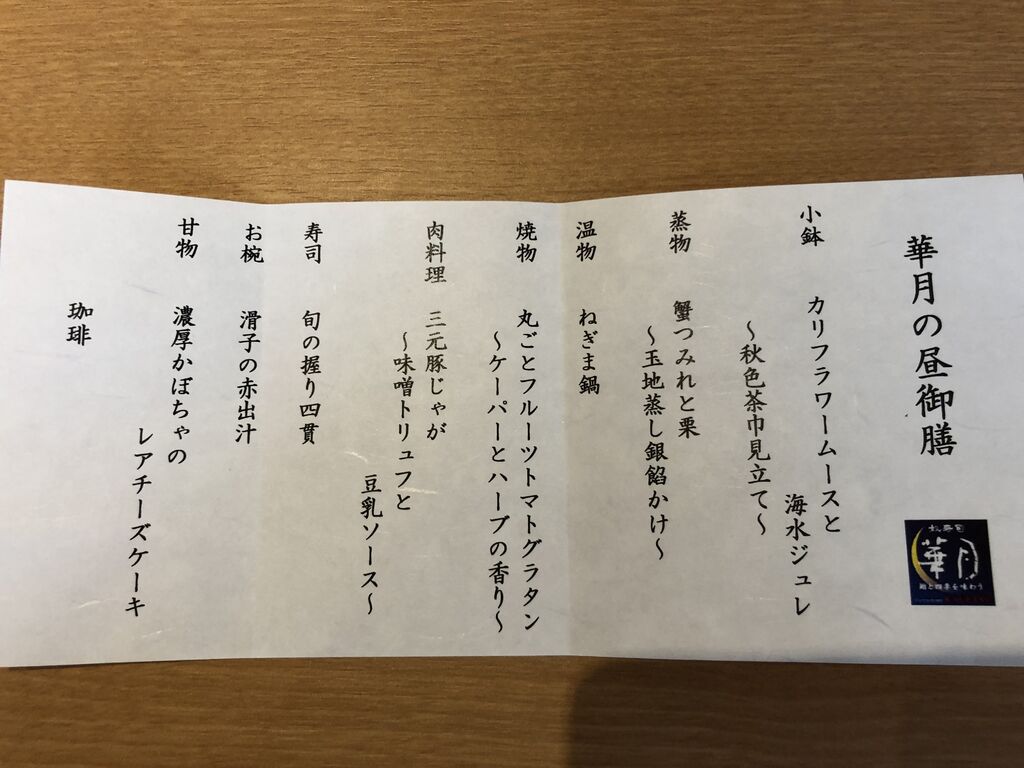 華月の昼御膳
華月
小鉢 カリフラワームースと
海水ジュレ
～秋色茶巾見立て～
蒸物 蟹つみれと栗
～玉地蒸し銀餡かけ～
温物 ねぎま鍋
焼物 丸ごとフルーツトマトグラタン
～ケーパーとハーブの香り～
肉料理 三元豚じゃが
～味噌トリュフと
豆乳ソース～
寿司 旬の握り四貫
お椀 滑子の赤出汁
甘物 濃厚かぼちゃの
レアチーズケーキ
珈琲